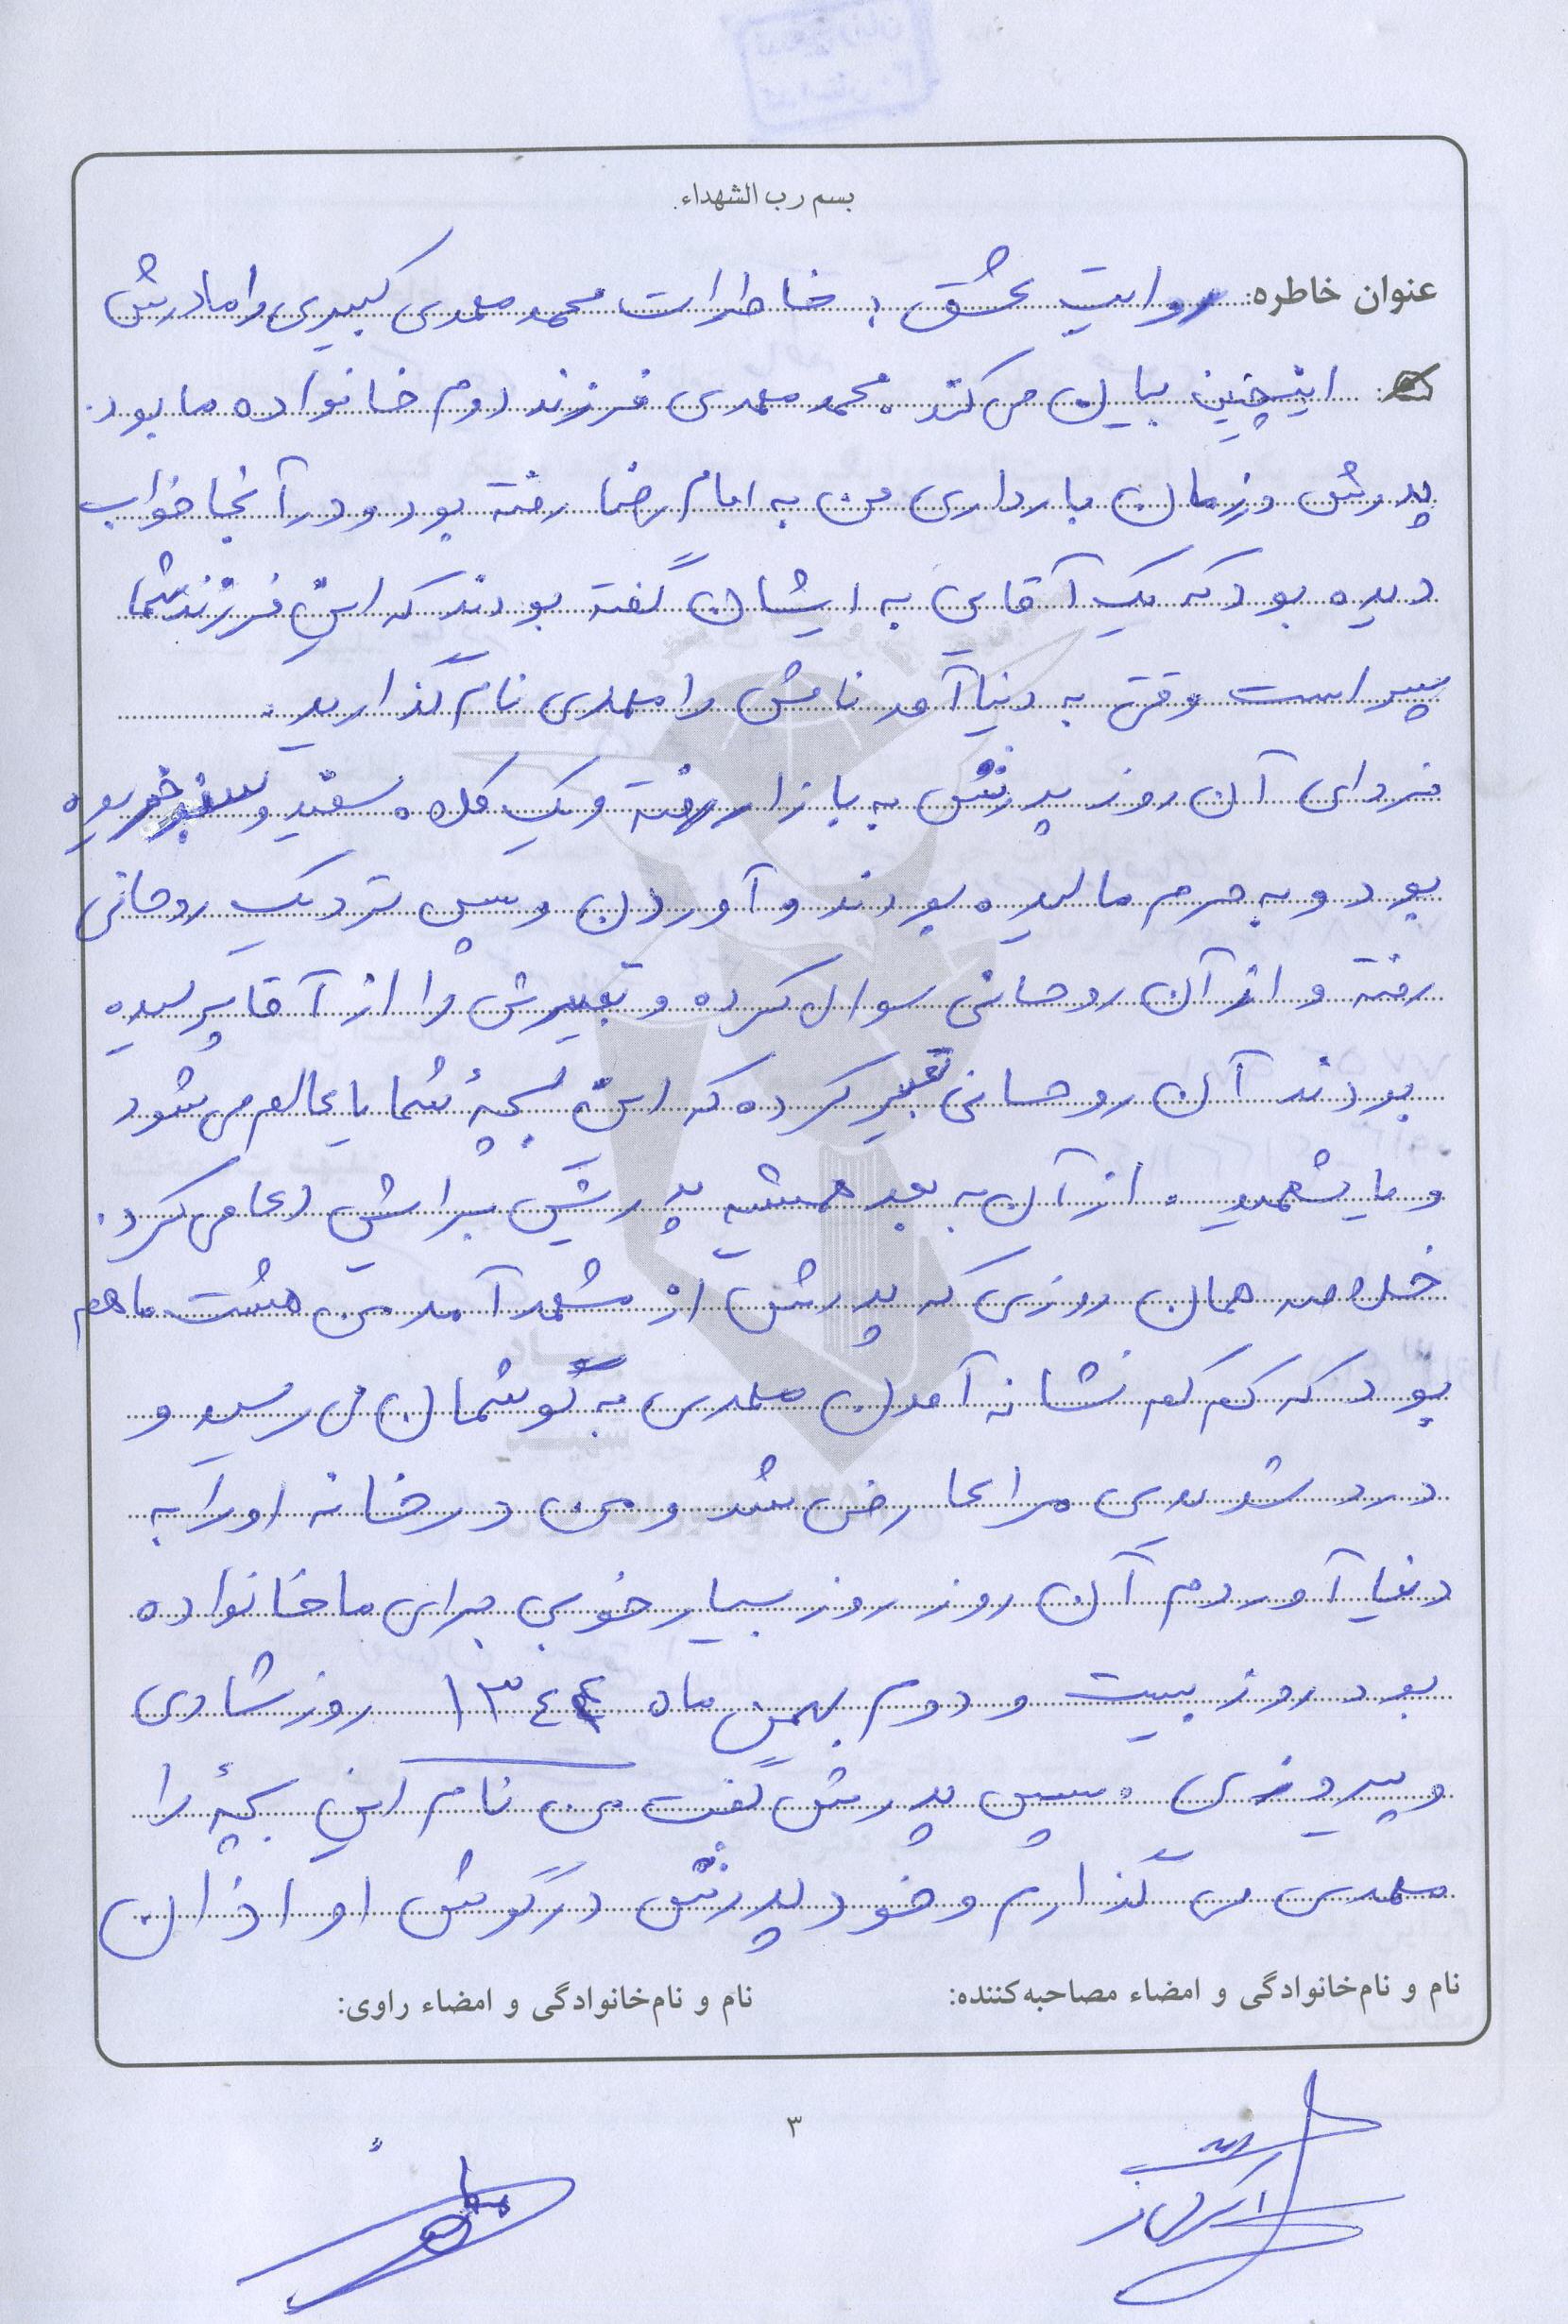 بسم رب الشهداء
عنوان خاطره: روایت عشق : خاطرات محمد مهدی کبیری را مادرش
اینچنین بیان می کند . محمد مهدی فرزند دوم خانواده ما بود .
پدرش در زمان بارداری من به امام رضا رفته بود و در آنجا خواب
دیده بود که یک آقایی به ایشان گفته بودند که این فرزند شما
پسر است وقتی به دنیا آمد نامش را مهدی نام گذارید .
فردای آن روز پدرش به بازار رفته و یک کلاه سفید و سبز خریده
بود و به حرم مالیده بودند و آوردن و سپس نزدیک روحانی
رفته و از آن روحانی سوال کرده و تعبیرش را از آقا پرسیده
بودند آن روحانی تعبیر کرده که این بچهٔ شما یا عالم می شود
و یا شهید . از آن به بعد همیشه پدرش برایش دعا می کرد .
خلاصه همان روزی که پدرش از مشهد آمد من هشت ماهم
بود که کم کم نشانه آمدن مهدی به گوشمان می رسید و
درد شدیدی مرا عارض شد و من در خانه او را به
دنیا آوردم آن روز روز بسیار خوبی برای ما خانواده
بود روز بیست و دوم بهمن ماه ۱۳۴۴ روز شادی
و پیروزی . سپس پدرش گفت من نام این بچهٔ را
مهدی می گذارم و خود پدرش در گوش او اذان
نام و نام‌خانوادگی و امضاء مصاحبه‌کننده: نام و نام‌خانوادگی و امضاء راوی:
۳